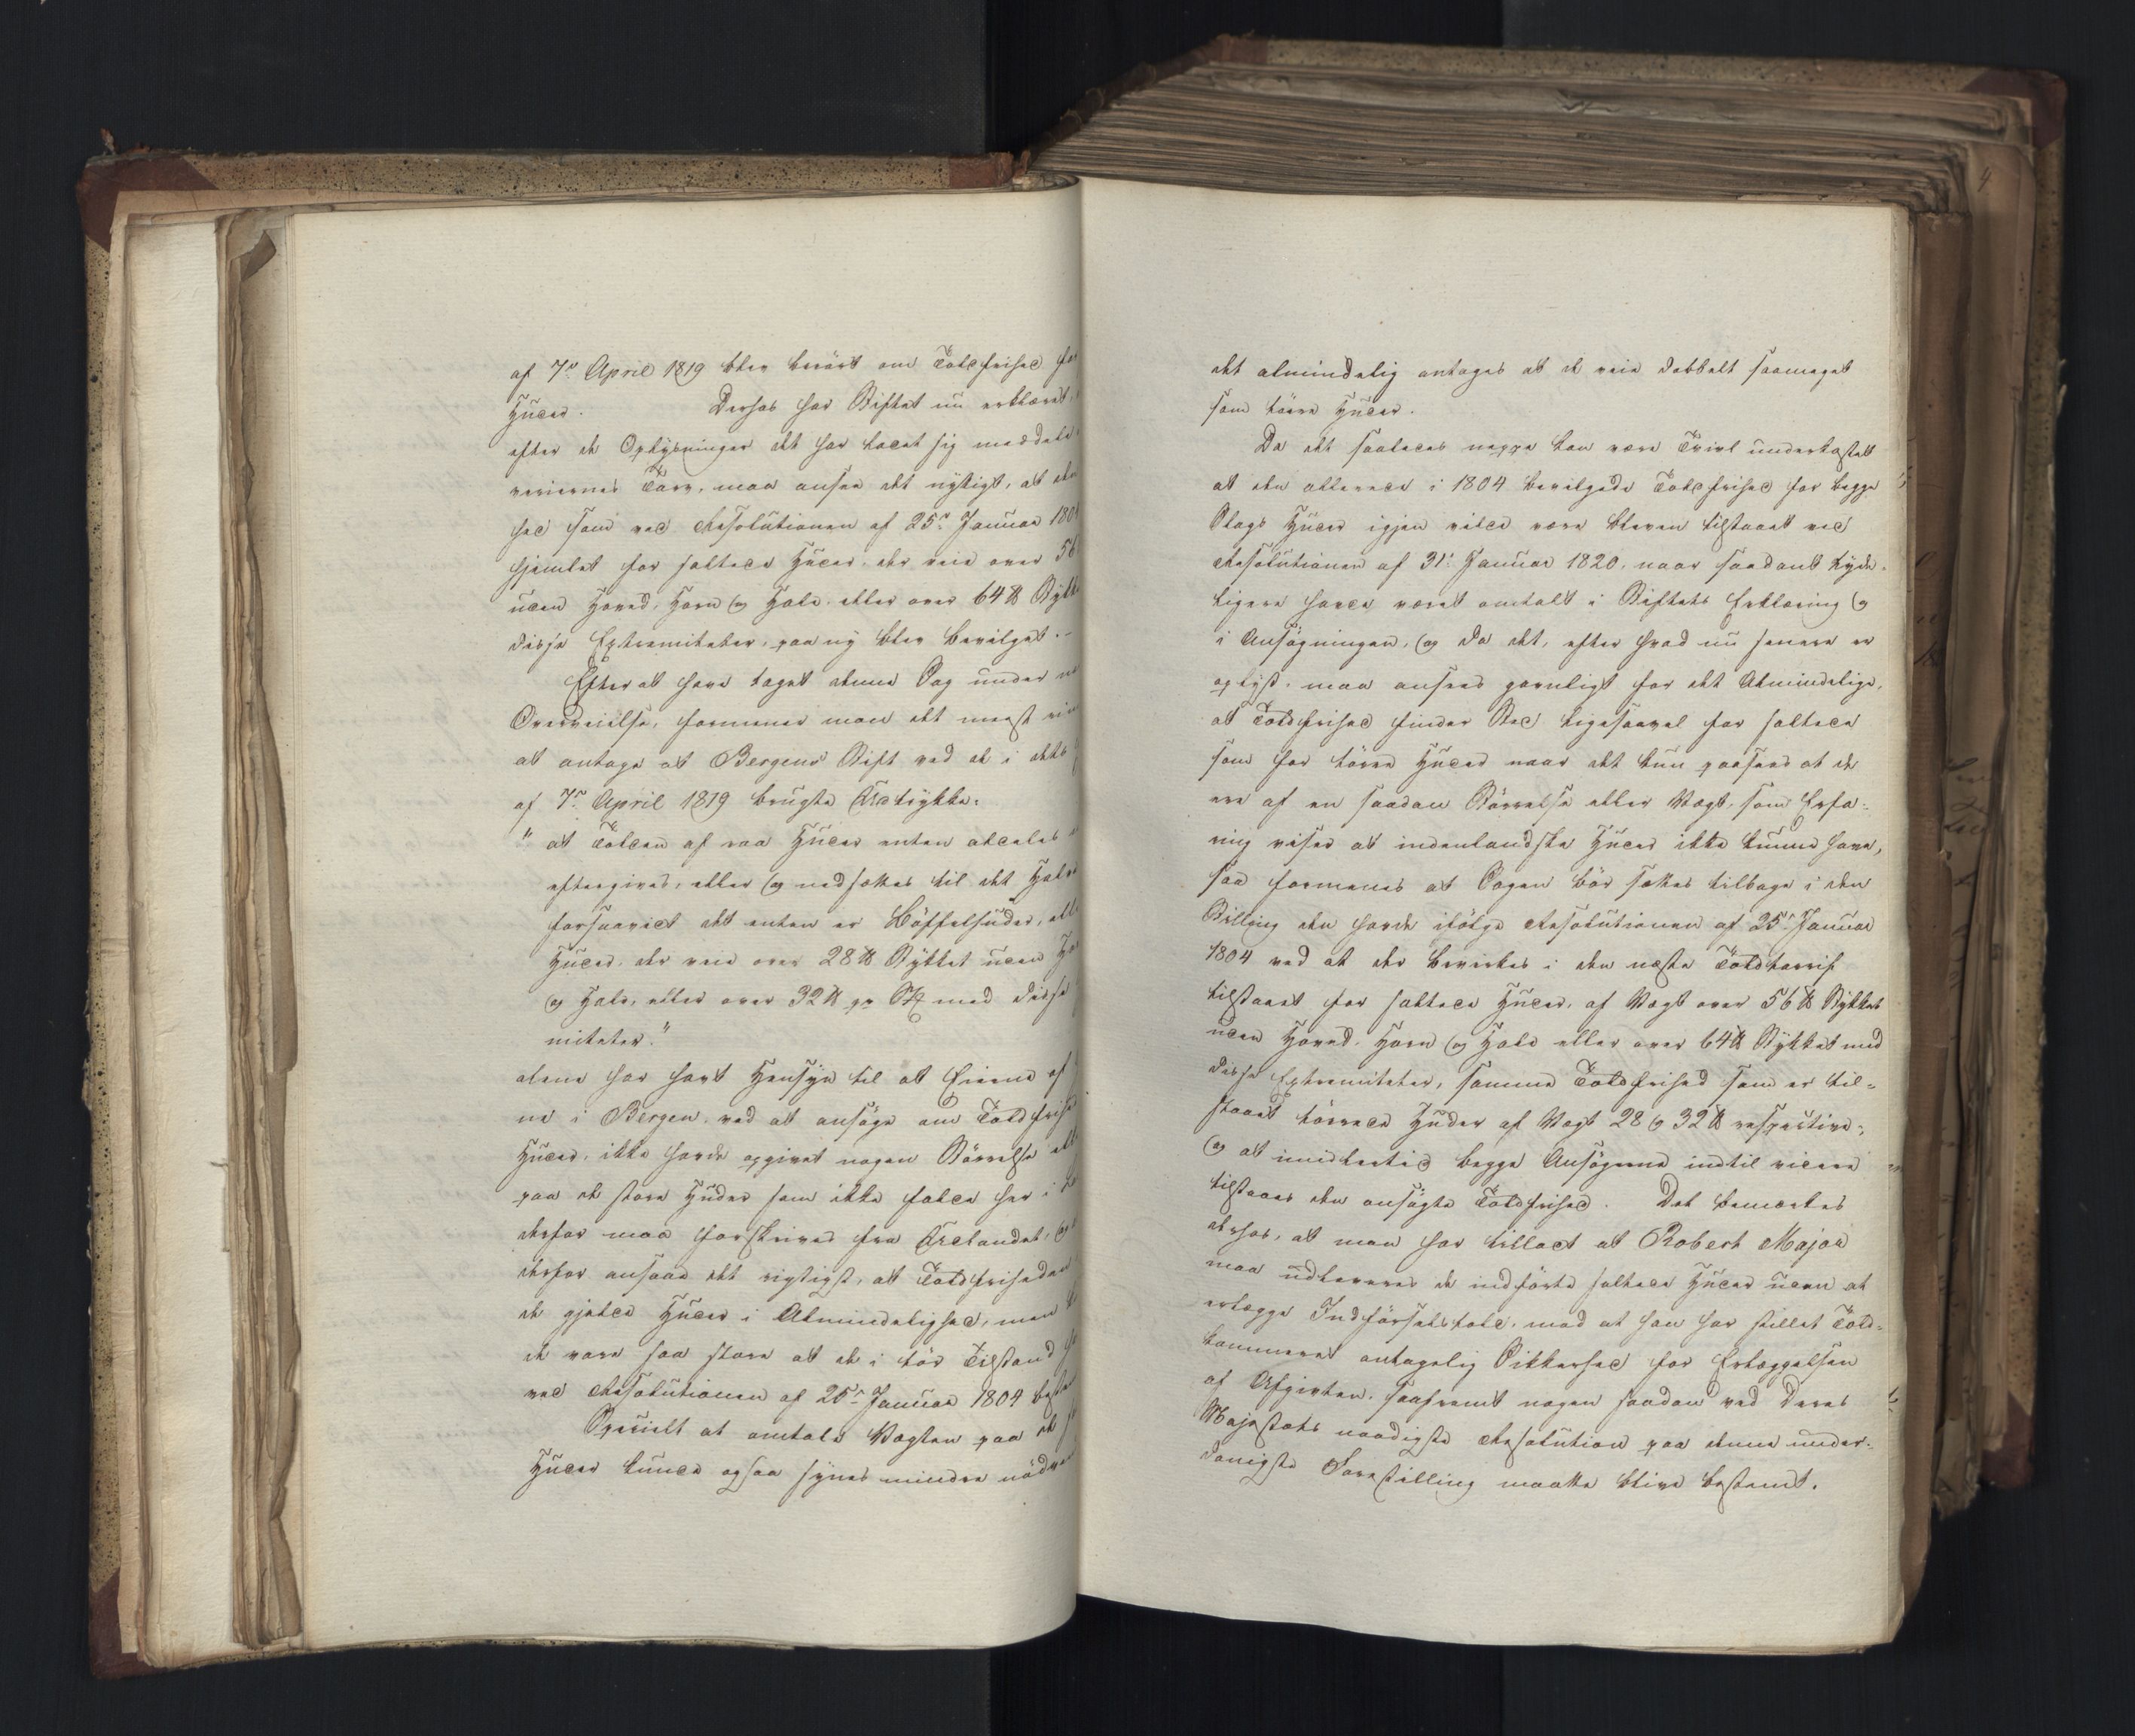 af 7de April 1819 blev berört om Toldfrihed for
Huder. Derhos har Stiftet nu erklæret,
efter de Oplysninger det har ladet sig meddele
veriernes Tarv, maa ansee det nyttigt, at den
hed som ved Resolutionen af 25de Januar 1804
hjemlet for saltede Huder, der veie over 56
uden Hoved, Horn og Hale, eller over 64 ℔ Stykket
disse Extremiteter, paa ny blev bevilget.-
Efter at have taget denne Sag under
Overveielse, formener man det meest
at antage at Bergens Stift ved de i dets
af 7de April 1819 brugte Udtrykke:
"at Tolden af raa Huder enten aldeles
eftergives, eller og nedsættes til det Halve
forsaavidt det enten er Böffelhuder, eller
Huder, der veie over 28 ℔ Stykket uden
og Hale, eller over 32 ℔ pr St. med disse
miteter."
alene har havt Hensyn til at Eierne af
ne i Bergen, ved at ansöge om Toldfrihed
Huder, ikke havde opgivet nogen Störrelse
paa de store Huder som ikke falde her i
derfor maa forskrives fra Udlandet, og
derfor ansaae det rigtigst, at Toldfriheden
de gjælde Huder i Almindelighed, men
de vare saa store at de i tör Tilstand
ved Resolutionen af 25de Januar 1804
Specielt at omtale Vægten paa de
Huder kunde ogsaa synes mindre
det almindelig antages at de veie dobbelt saameget
som törre Huder.
Da det saaledes neppe kan være Tvivl underkastet
at den allerede i 1804 bevilgede Toldfrihed for begge
Slags Huder igjen vilde være bleven tilstaaet ved
Resolutionen af 31te Januar 1820, naar saadant tyde-
ligere havde været omtalt i Stiftets Erklæring og
i Ansögningen, og da det, efter hvad nu senere er
oplyst, maa ansees gavnligt for det Almindelige,
at Toldfrihed finder Sted ligesaavel for saltede
som for törre Huder naar det kun paasees at de
ere af en saadan Störrelse eller Vægt, som Erfa-
ring viser at indenlandske Huder ikke kunne have,
saa formenes at Sagen bör sættes tilbage i den
Stilling den havde ifölge Resolutionen af 25de Januar
1804 ved at der bevirkes i den næste Toldtarrif
tilstaaet for saltede Huder, af Vægt over 56 ℔ Stykket
uden Hoved, Horn og Hale eller over 64 ℔ Stykket med
disse Extremiteter, samme Toldfrihed som er til-
staaet törrede Huder af Vægt 28 og 32 ℔ respective,
og at imidlertid begge Ansögerne indtil videre
tilstaaes den ansögte Toldfrihed. Det bemærkes
derhos, at man har tilladt at Robert Major
maa udleveres de indförte saltede Huder uden at
erlægge Indförselstold, mod at han har stillet Told-
kammeret antagelig Sikkerhed for Erlæggelsen
af Afgivten, saafremt nogen saadan ved Deres
Majestæts naadigste Resolution paa denne under-
danigste Forestilling maatte blive bestemt.